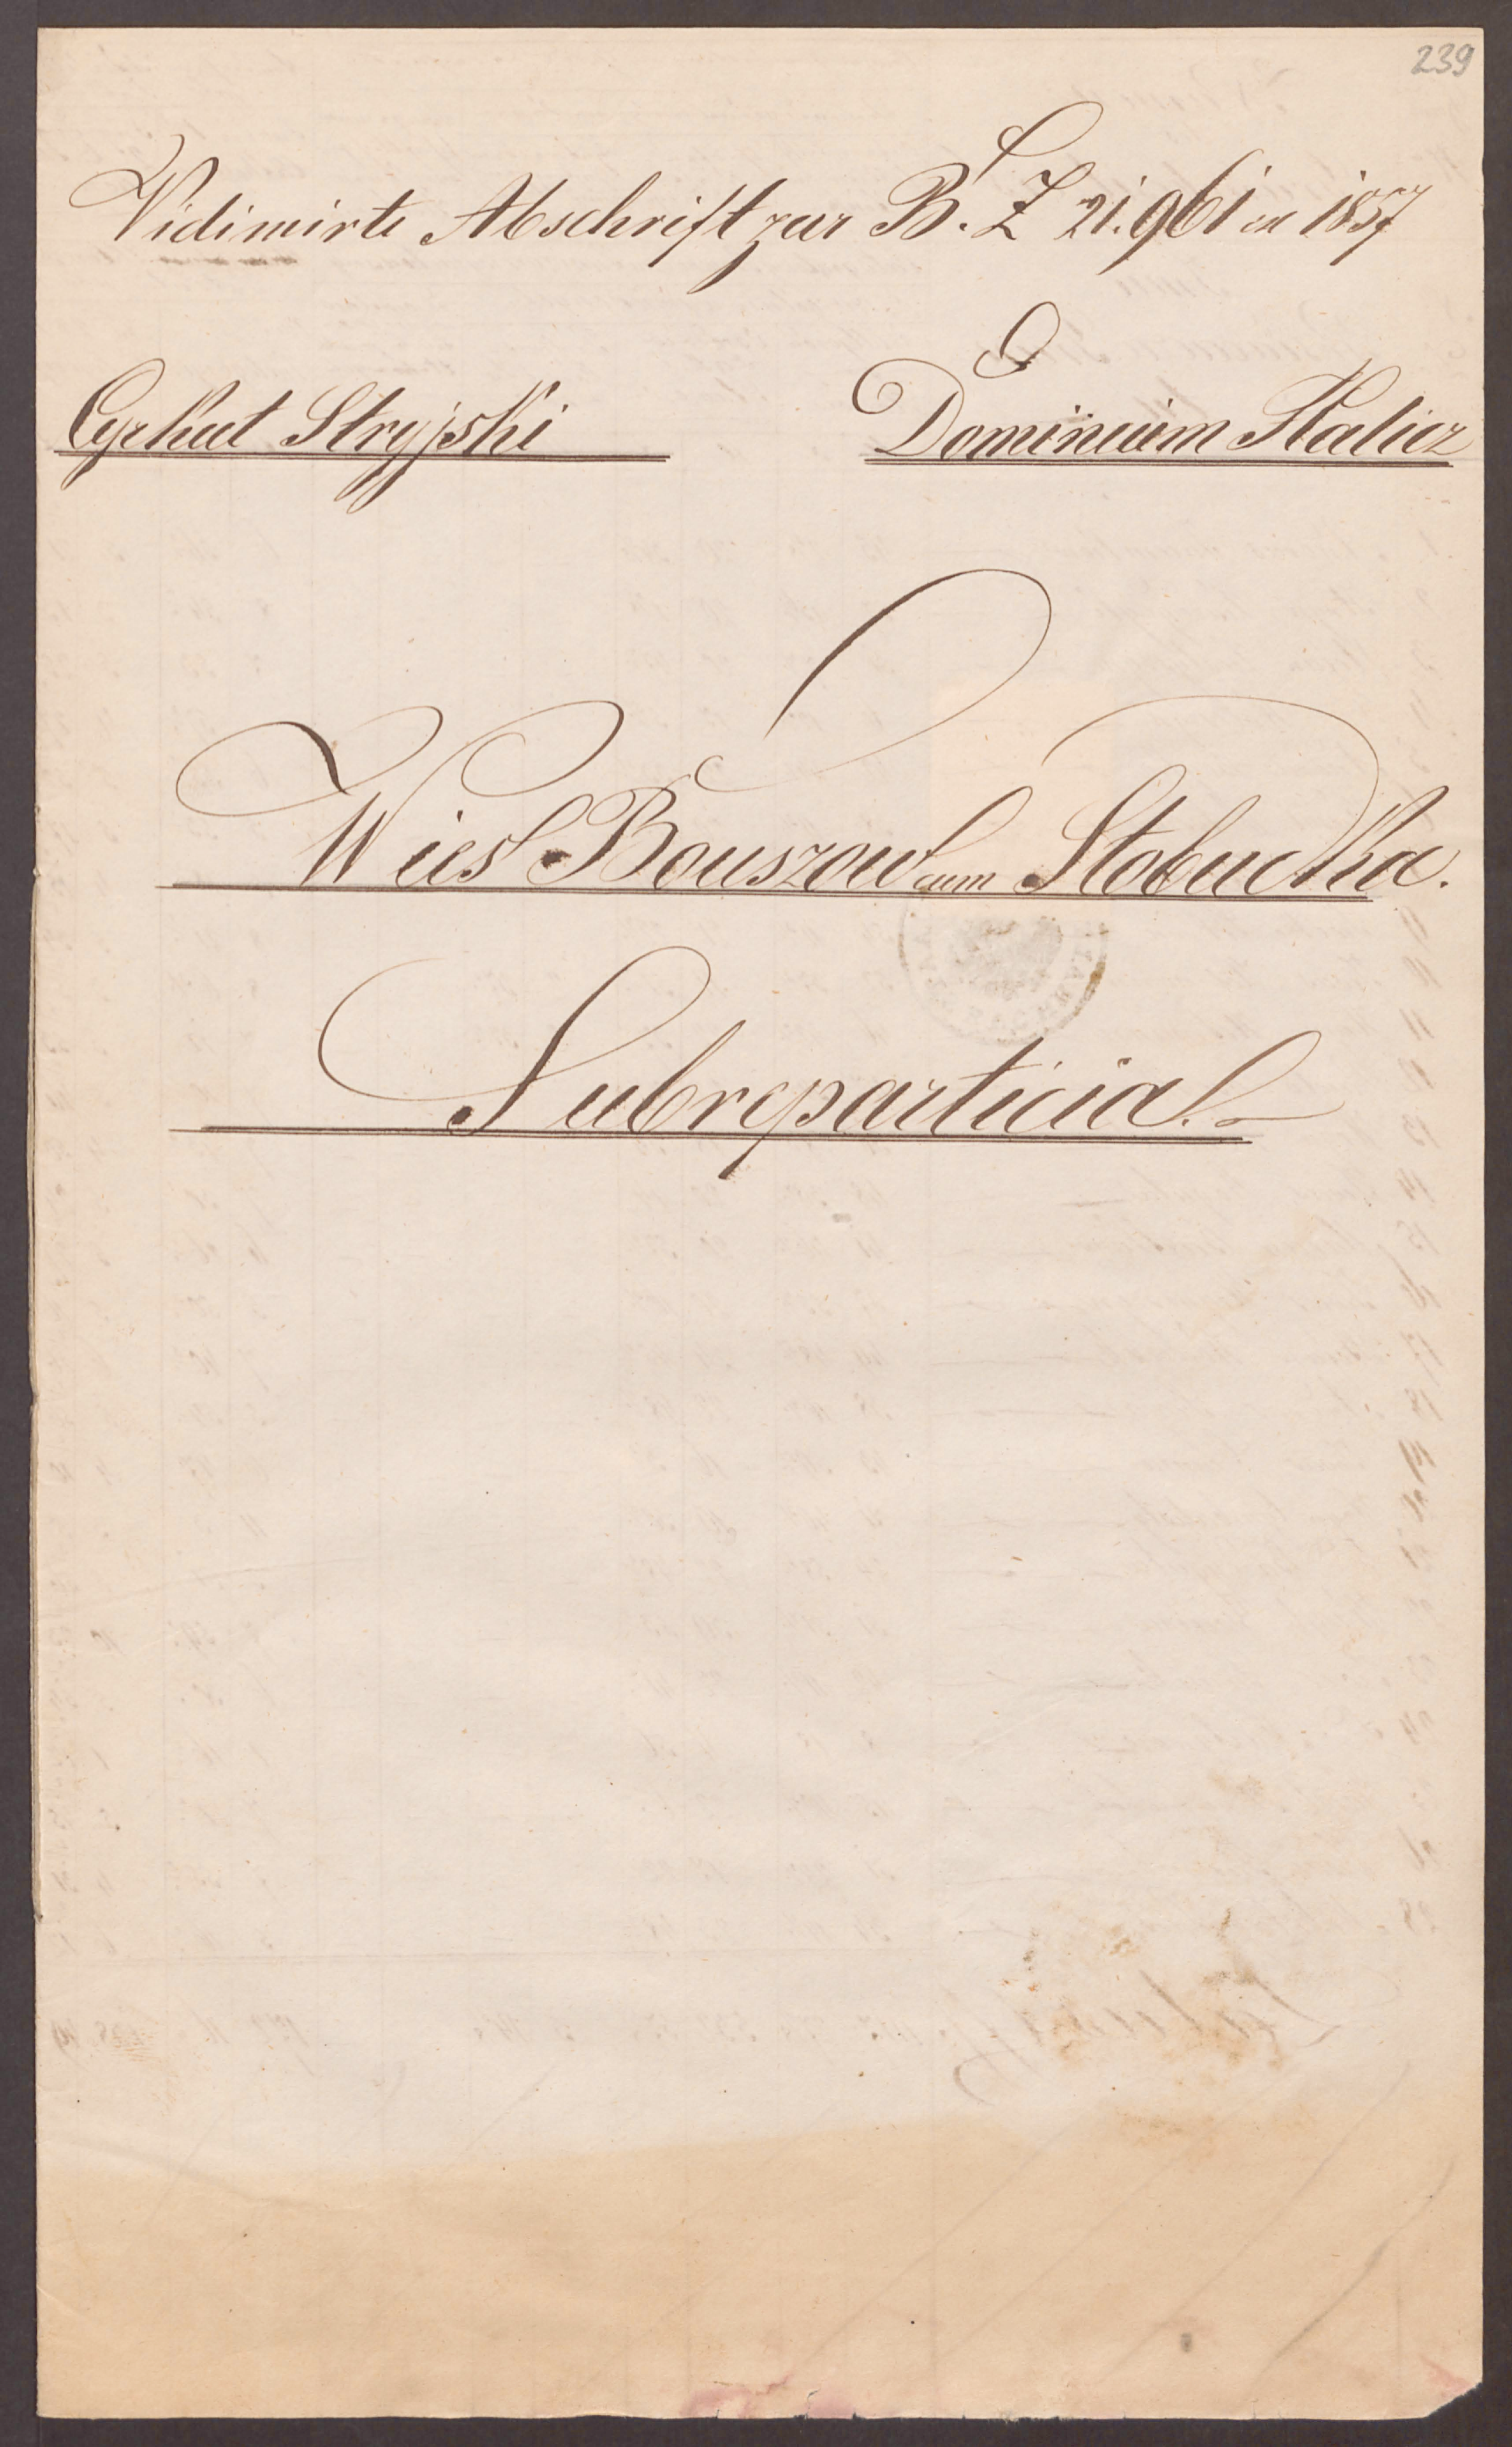 239
Vidimirte Abschrift zur B. Z 21.961 ex 1857
Cyrkuł Stryjski
Dominium Halicz
Wieś Bouszow cum Słobudka.
Subreparticia.